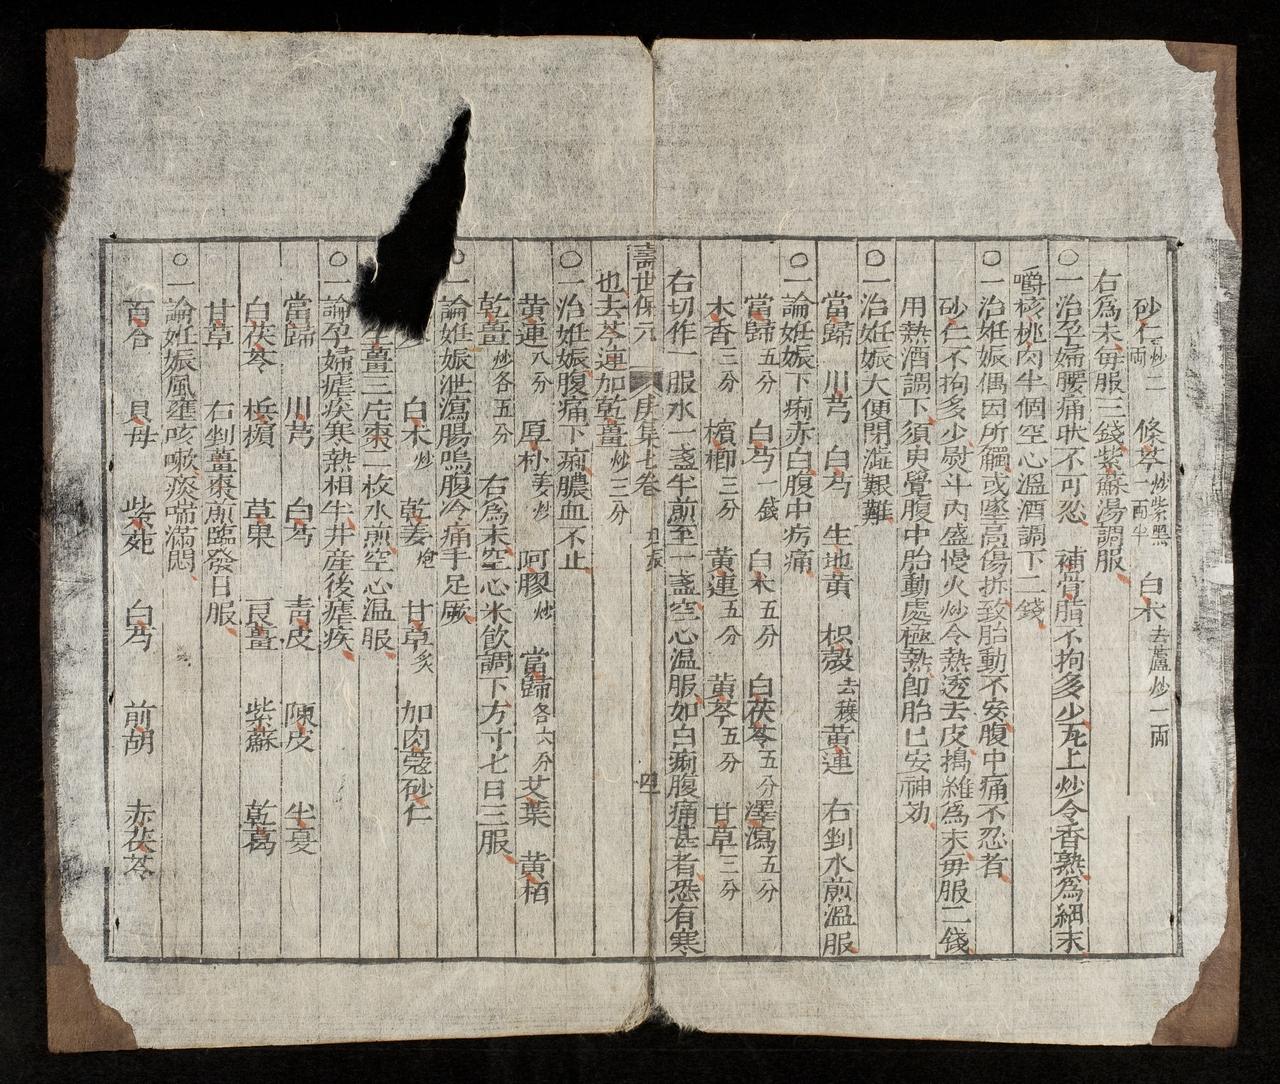 砂仁炒二兩 條芩炒紫黑一兩半 白朮去蘆炒一兩
右爲末每服三錢紫蘇湯調服
○一治孕婦腰痛狀不可忍 補骨脂不拘多少瓦上炒令香熟爲細末
嚼核桃肉半個空心溫酒調下二錢
○一治姙娠偶因所觸或墜高傷折致胎動不安腹中痛不忍者
砂仁不拘多少熨斗內盛慢火炒令熱透去皮搗羅爲末每服二錢
用熱酒調下須臾覺腹中胎動處極熱卽胎已安神効
○一治姙娠大便閉澁艱難
當歸 川芎 白芍 生地黃 枳殼去穰 黃連 右剉水煎溫服
○一論姙娠下痢赤白腹中疠痛
當歸五分 白芍一錢 白朮五分 白茯苓五分 澤瀉五分
木香三分 檳榔三分 黃連五分 黃芩五分 甘草三分
右切作一服水一盞半煎至一盞空心温服如白痢腹痛甚者恐有寒
壽世保元 庚集七卷 姙娠 四
也去芩連加乾薑炒三分
○一治姙娠腹痛下痢膿血不止
黃連八分 厚朴姜炒 阿膠炒 當歸各六分 艾葉 黃栢
乾薑炒各五分 右爲末空心米飮調下方寸七日三服
○一論姙娠泄瀉腸鳴腹冷痛手足厥
白朮炒 乾姜炮 甘草炙 加肉蔻砂仁
生薑三片棗二枚水煎空心温服
○一論孕婦瘧疾寒熱相半并産後瘧疾
當歸 川芎 白芍 靑皮 陳皮 半夏
白茯苓 梹榔 草果 良薑 紫蘇 乾葛
甘草 右剉薑棗煎臨發日服
○一論姙娠風壅咳嗽痰喘滿悶
百合 貝母 紫菀 白芍 前胡 赤茯苓